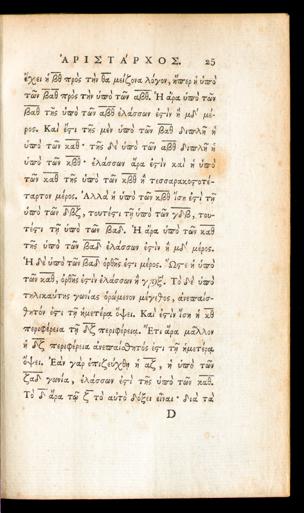 ἈΡΙΣΤΑΡΧΟΣ. 25
ἔχει ἡ β̅θ̅ πρὸς τὴν θ̅α̅ μείζονα λόγον, ἤπερ ἡ ὑπὸ
τῶν β̅α̅θ̅ πρὸς τὴν ὑπὸ τῶν α̅β̅θ̅. Ἡ ἄρα ὑπὸ τῶν
β̅α̅θ̅ τῆς ὑπὸ τῶν α̅β̅θ̅ ἐλάσσων ἐστὶν ἢ μδʹ μέ-
ρος. Καὶ ἔστι τῆς μὲν ὑπὸ τῶν β̅α̅θ̅ διπλῆ ἡ
ὑπὸ τῶν κ̅α̅θ̅ · τῆς δὲ ὑπὸ τῶν α̅β̅θ̅ διπλῆ ἡ
ὑπὸ τῶν κ̅β̅θ̅ · ἐλάσσων ἄρα ἐστὶν καὶ ἡ ὑπὸ
τῶν κ̅α̅θ̅ τῆς ὑπὸ τῶν κ̅β̅θ̅ ἢ τισσαρακοστοτέ-
ταρτον μέρος. Ἀλλὰ ἡ ὑπὸ τῶν κ̅β̅θ̅ ἴση ἐστὶ τῇ
ὑπὸ τῶν δ̅β̅ζ̅, τουτέστι τῇ ὑπὸ τῶν γ̅δ̅β̅, του-
τέστι τῇ ὑπὸ τῶν β̅α̅δ̅. Ἡ ἄρα ὑπὸ τῶν κ̅α̅θ̅
τῆς ὑπὸ τῶν β̅α̅δ̅ ἐλάσσων ἐστὶν ἢ μδʹ μέρος.
Ἡ δὲ ὑπὸ τῶν β̅α̅δ̅ ὀρθῆς ἐστι μέρος. Ὥστε ἡ ὑπὸ
τῶν κ̅α̅θ̅, ὀρθῆς ἐστὶν ἐλάσσων ἢ Τὸ δὲ ὑπὸ
τηλικαύτης γωνίας ὁρώμενον μέγεθος, ἀνεπαίσ-
θητόν ἐστι τῇ ἡμετέρᾳ ὄψει. Καὶ ἐστὶν ἴση ἡ κ̅θ̅
περιφέρεια τῇ δ̅ζ̅ περιφερείᾳ. Ἔτι ἄρα μᾶλλον
ἡ δ̅ζ̅ περιφέρεια ἀνεπαίσθητός ἐστι τῇ ἡμετέρᾳ
ὄψει. Ἐὰν γὰρ ἐπιζευχθῇ ἡ α̅ζ̅, ἡ ὑπὸ τῶν
ζ̅α̅δ̅ γωνία, ἐλάσσων ἐστὶ τῆς ὑπὸ τῶν κ̅α̅θ̅.
Τὸ δ̅ ἄρα τῷ ζ̅ τὸ αὐτὸ δόξει εἶναι · διὰ τὰ
D